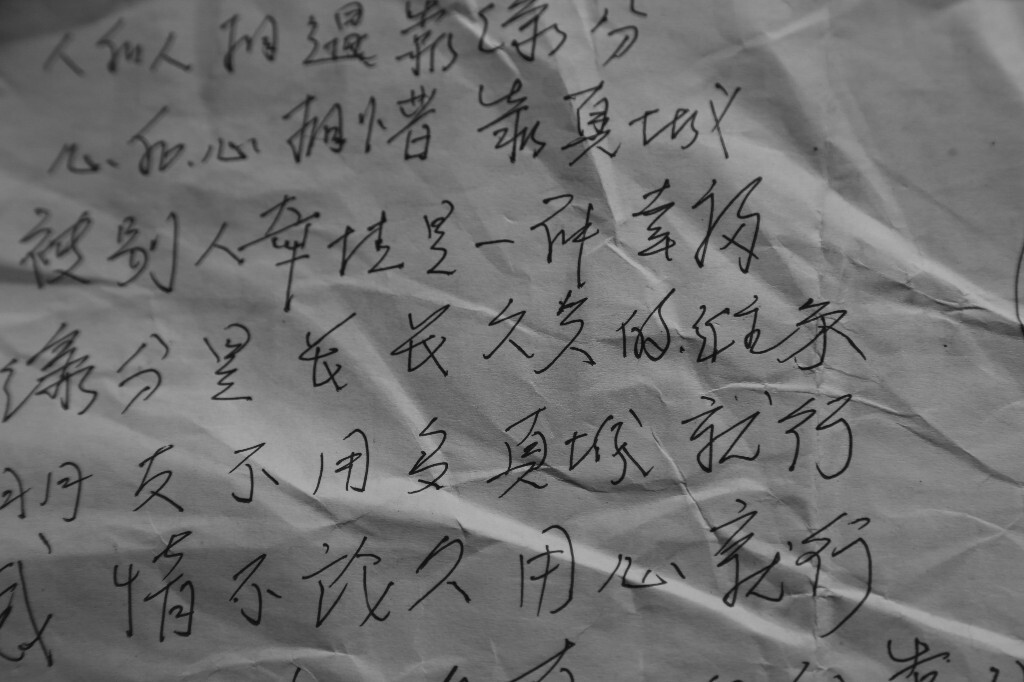 人和人相遇靠缘分
心和心相惜靠真城
被别人牵挂是一种幸福
缘分是长长久久的往来
朋友不用多真城就行
感情不论久用心就行